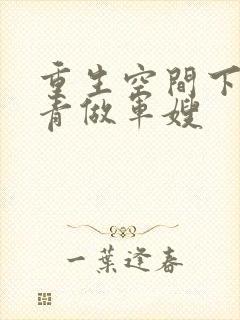 重生空間下
青做軍嫂
一葉逢春